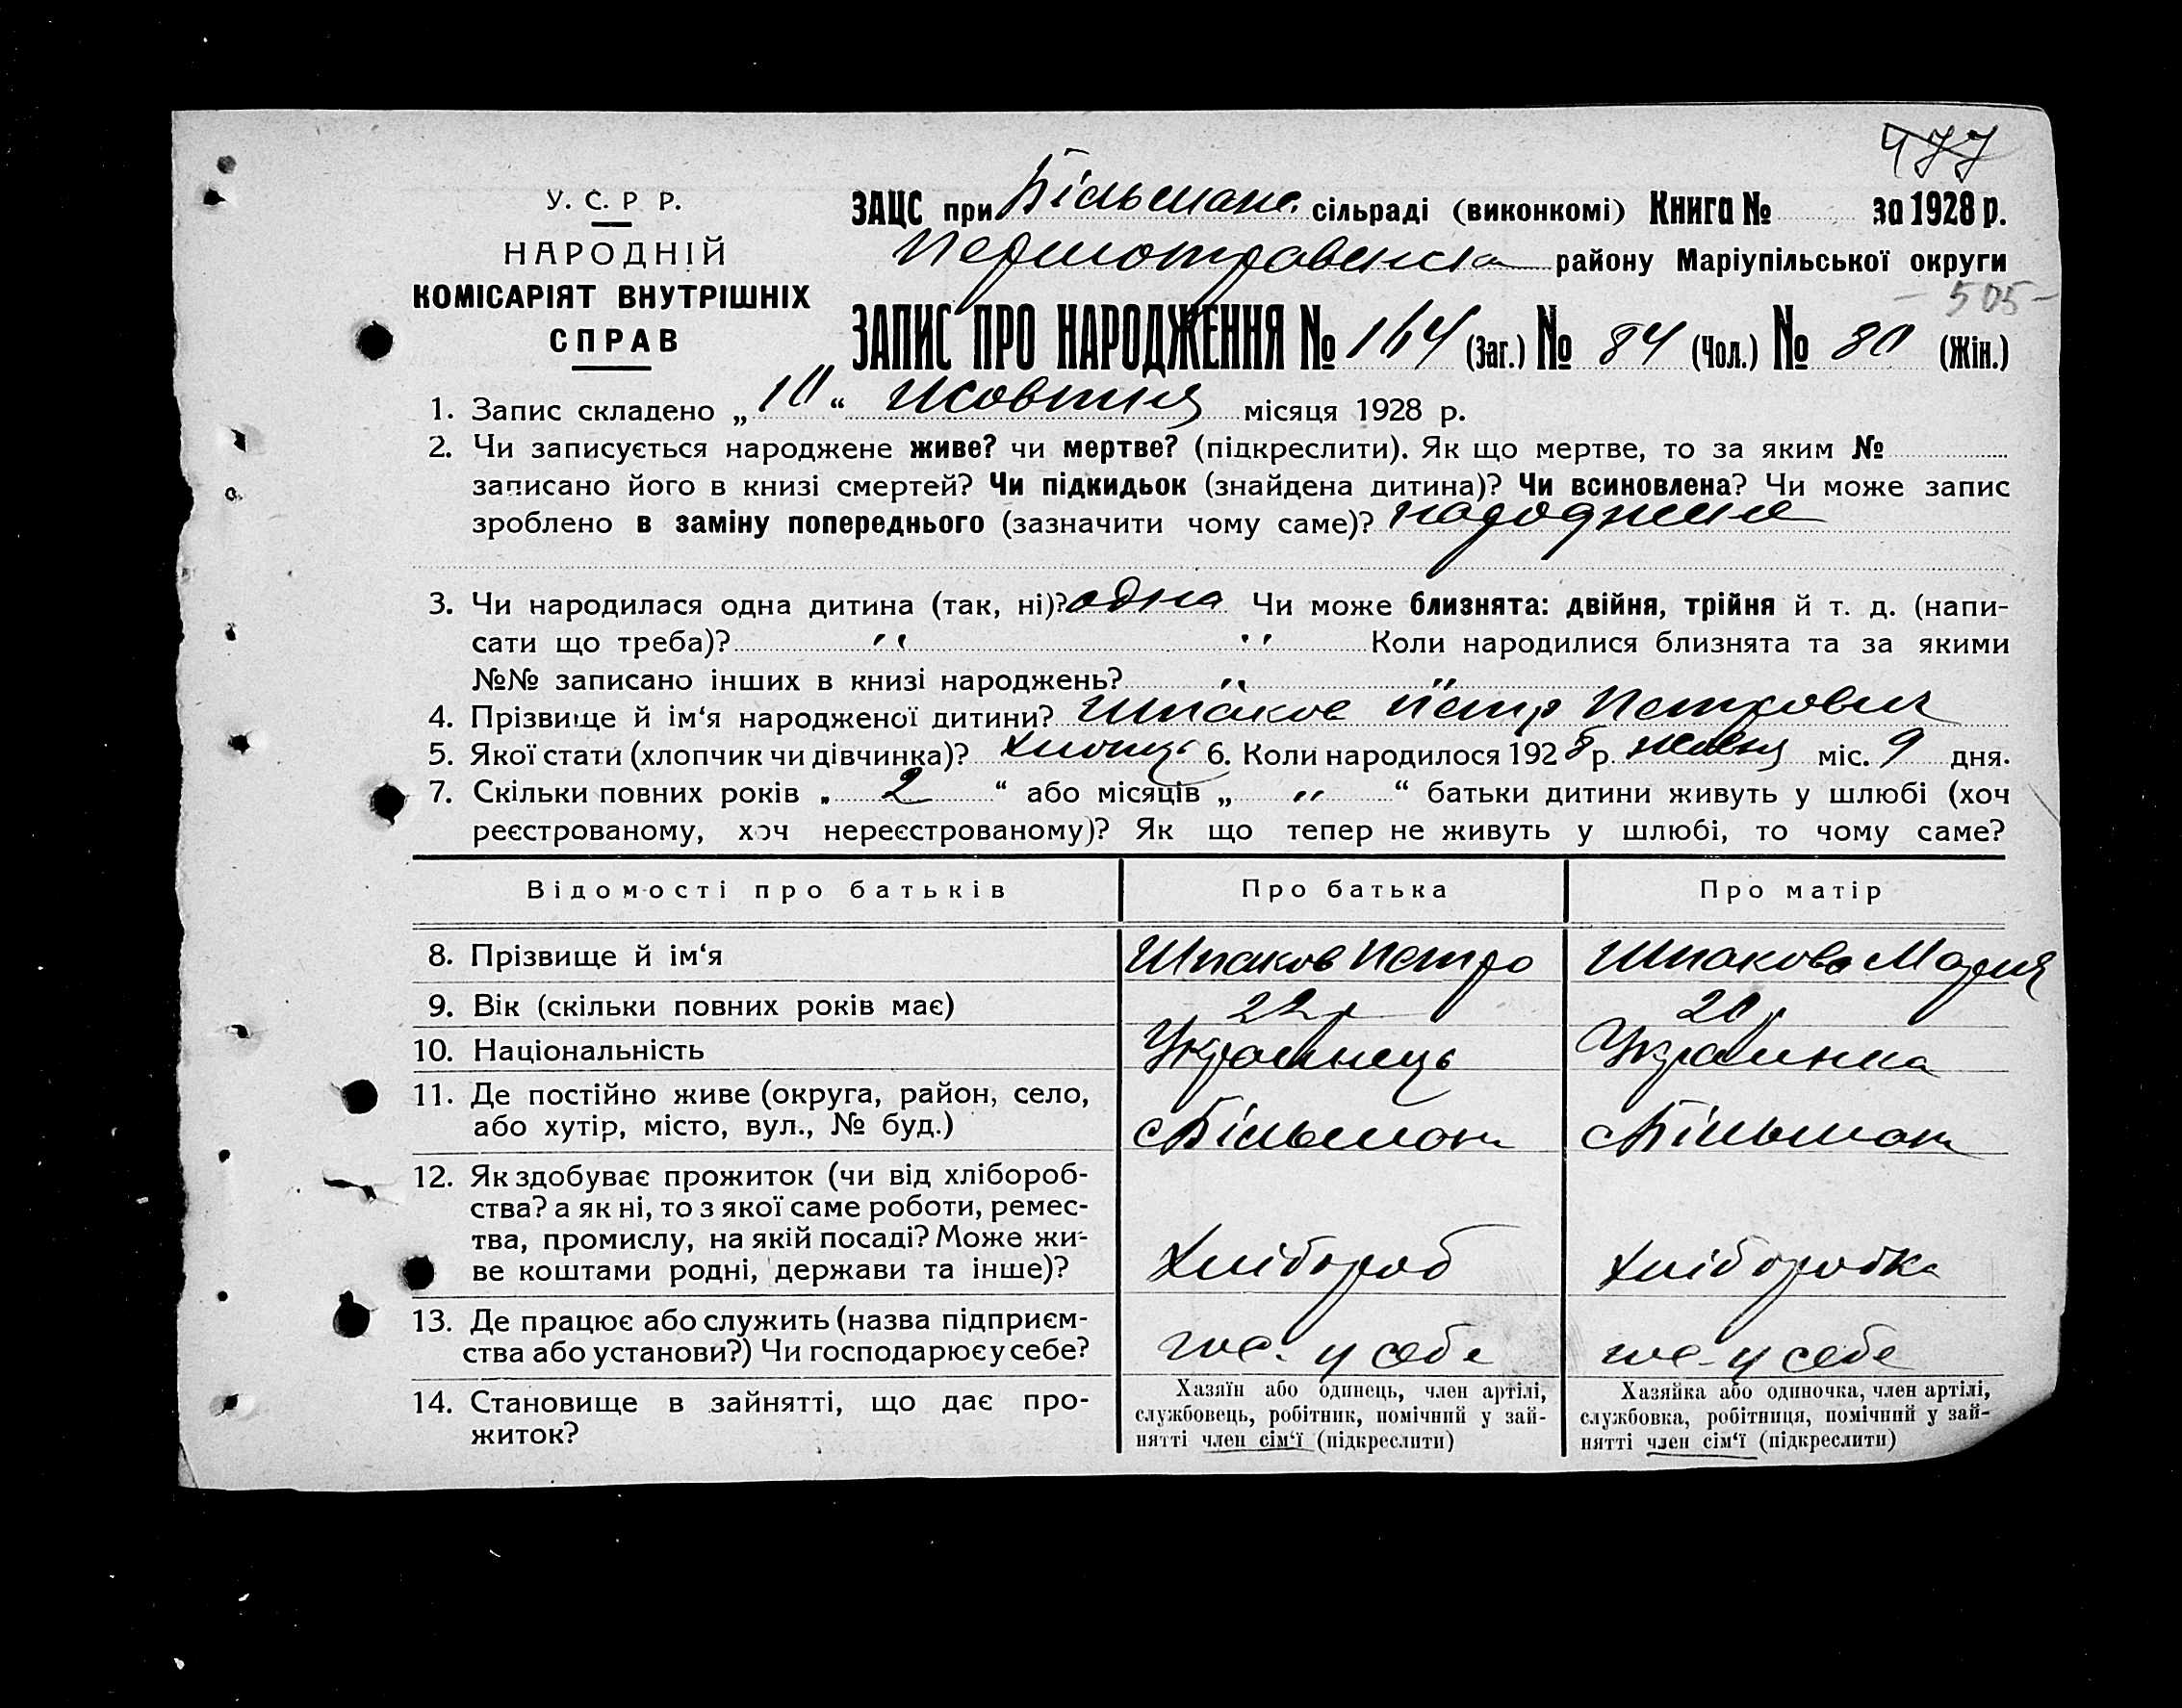 477
У. С. Р Р.
НАРОДНІЙ
КОМІСАРІЯТ ВНУТРІШНІХ
СПРАВ
ЗАЦС при Більманс. сільраді (виконкомі) Книга № за 1928 р.
Першотравенсца району Маріупільської округи
- 505 -
ЗАПИС ПРО НАРОДЖЕННЯ № 164 (Заг.) № 84 (Чол.) № 80 (Жін.)
1. Запис складено „ 10 “ Жовтня місяця 1928 р.
2. Чи записується народжене живе? чи мертве? (підкреслити). Як що мертве, то за яким №
записано його в книзі смертей? Чи підкидьок (знайдена дитина)? Чи всиновлена? Чи може запис
зроблено в заміну попереднього (зазначити чому саме)?
3. Чи народилася одна дитина (так, ні)? одна Чи може близнята: двійня, трійня й т. д. (напи-
сати що треба)? „ „ Коли народилися близнята та за якими
№№ записано інших в книзі народжень? „ „
4. Прізвище й ім‘я народженої дитини? Шпаков Петр Петрович
5. Якої стати (хлопчик чи дівчинка)? хлопц 6. Коли народилося 1928 р. міс. 9 дня.
7. Скільки повних років „ 2 “ або місяців „ „ “ батьки дитини живуть у шлюбі (хоч
реєстрованому, хоч нереєстрованому)? Як що тепер не живуть у шлюбі, то чому саме?
Відомості про батьків Про батька Про матір
8. Прізвище й ім‘я Шпаков Петро Шпакова Мария
9. Вік (скільки повних років має) 22 р 20 р
10. Національність Українець Українка
11. Де постійно живе (округа, район, село,
або хутір, місто, вул., № буд.) с Більман с Більман
12. Як здобуває прожиток (чи від хлібороб-
ства? а як ні, то з якої саме роботи, ремес-
тва, промислу, на якій посаді? Може жи-
ве коштами родні, держави та інше)? Хлібороб Хліборобка
13. Де працює або служить (назва підприєм-
ства або установи?) Чи господарює у себе? у себе у себе
14. Становище в зайнятті, що дає про-
житок?
Хазяїн або одинець, член артілі,
службовець, робітник, помічний у зай-
нятті член сім‘ї (підкреслити)
Хазяйка або одиночка, член артілі,
службовка, робітниця, помічний у зай-
нятті член сім‘ї (підкреслити)